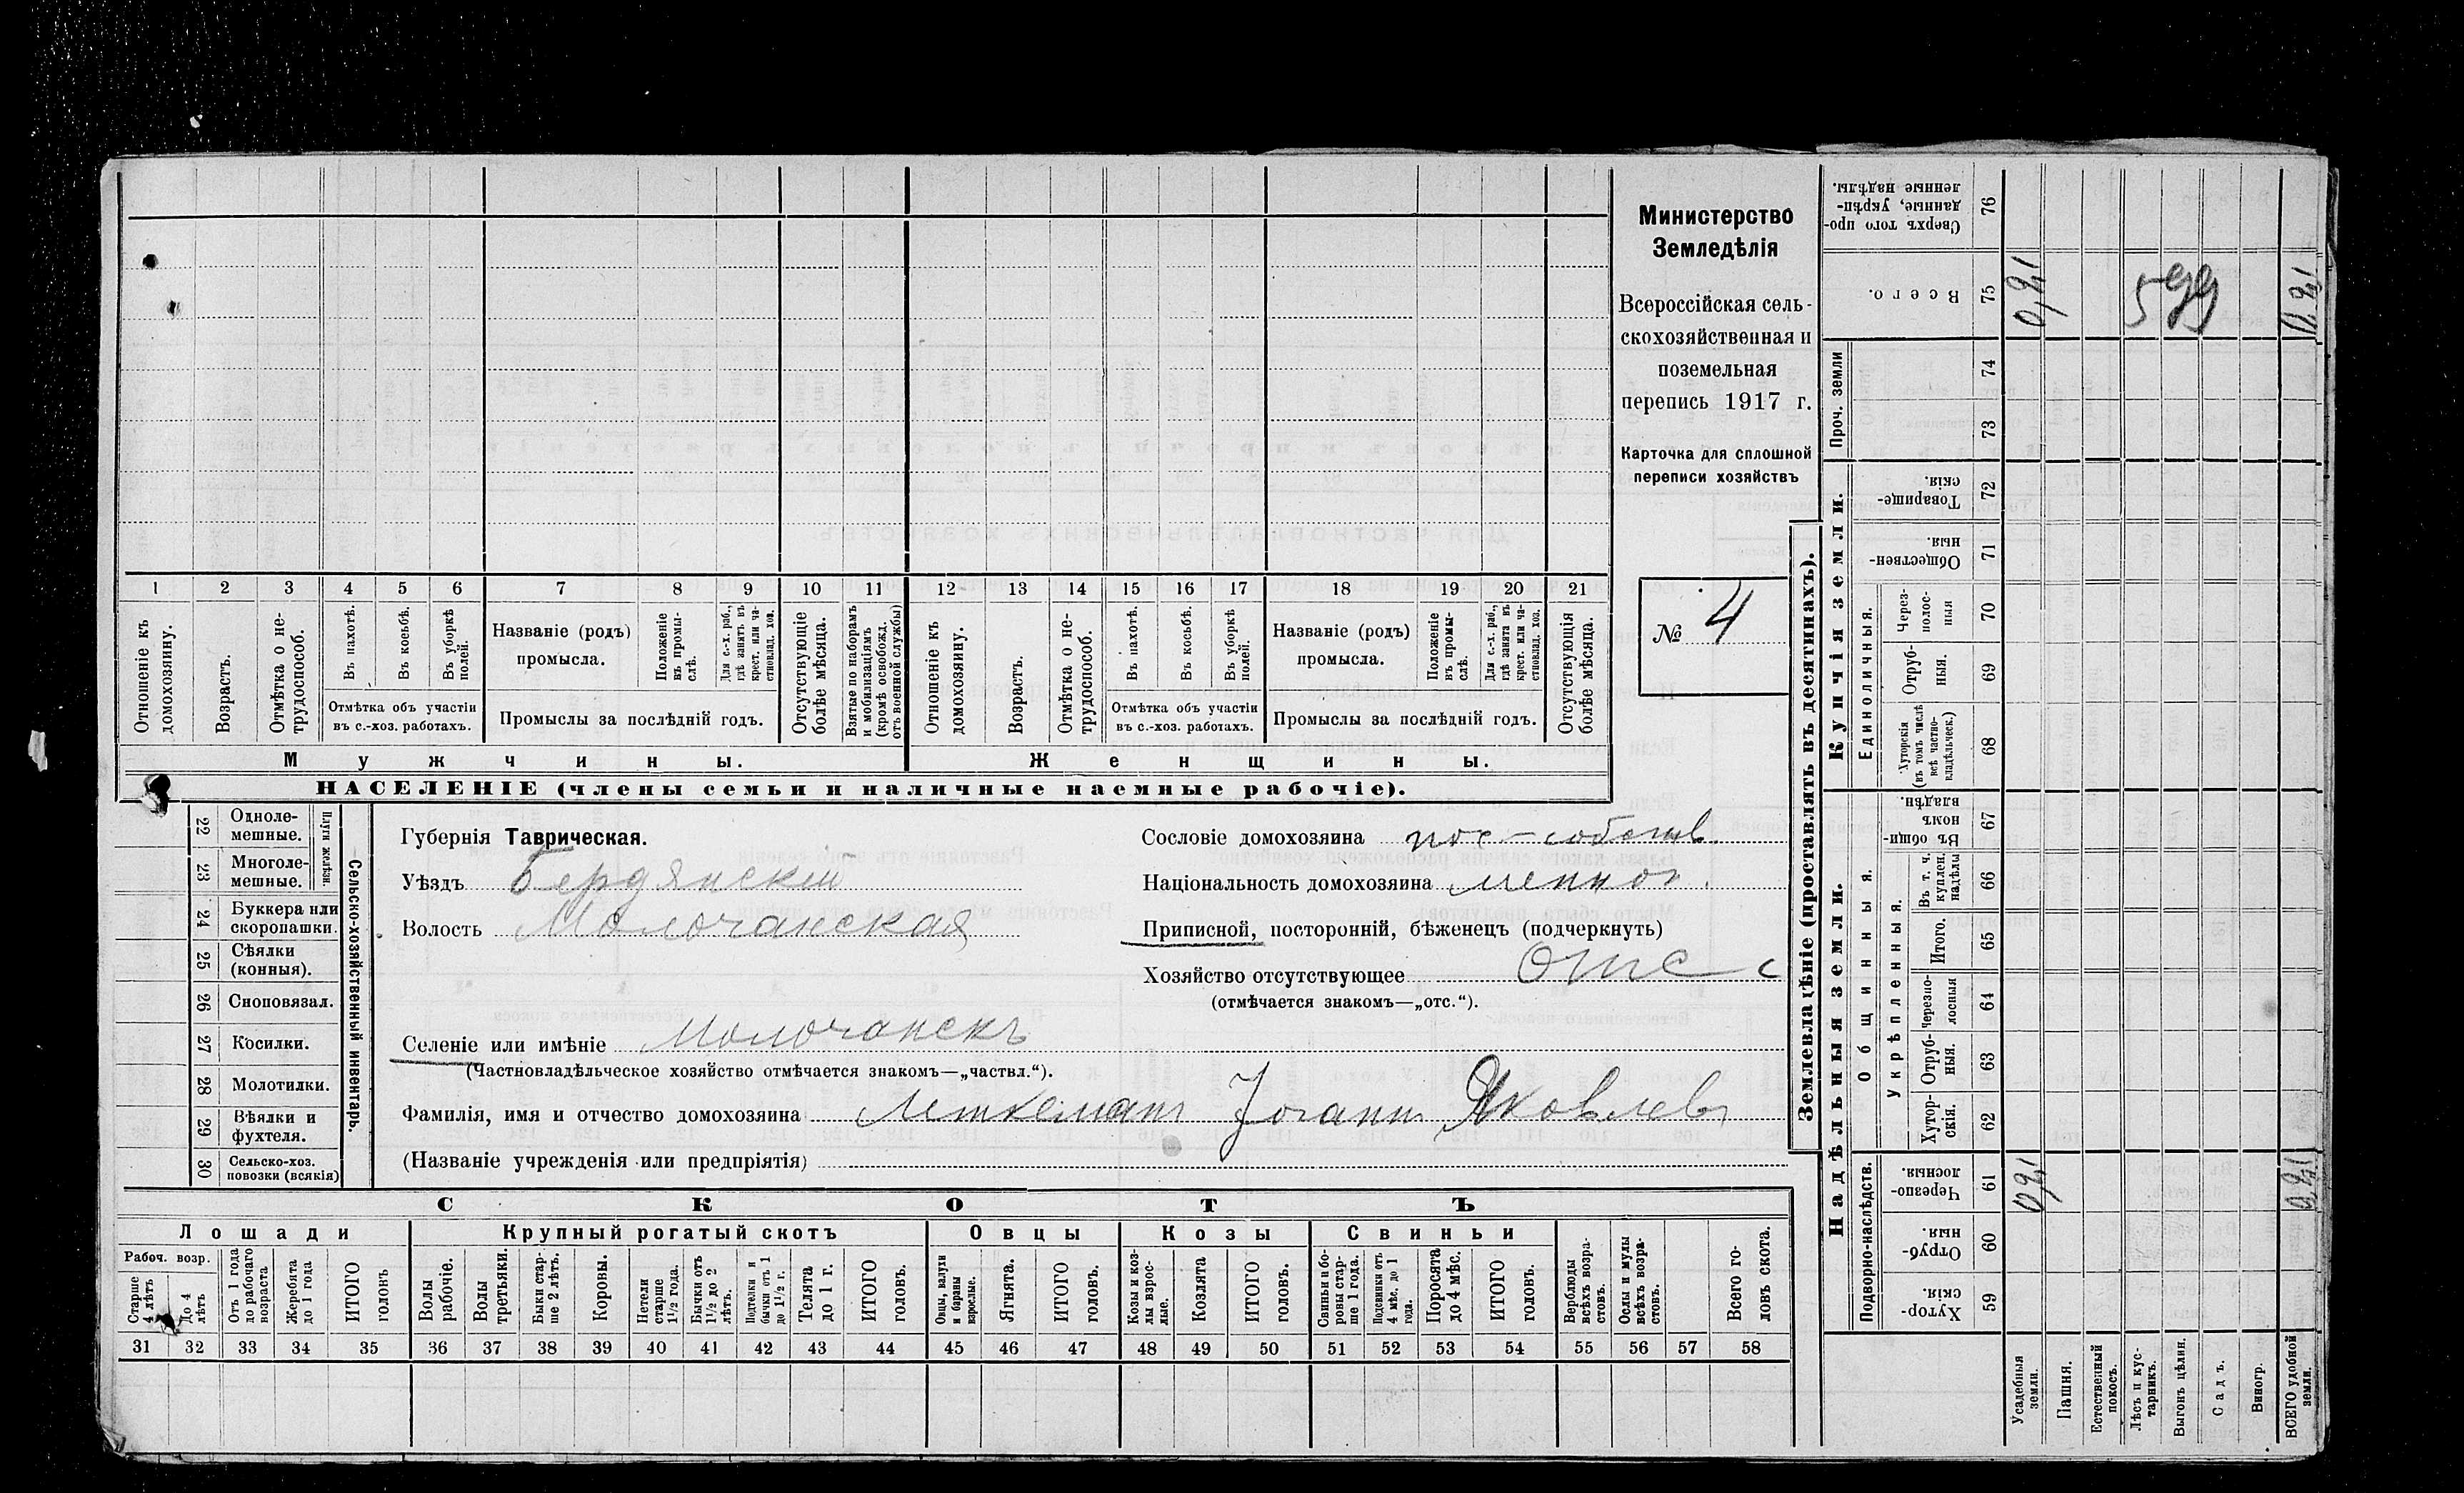 Министерство
Земледѣлія
Всероссійская сель-
скохозяйственная и
поземельная
перепись 1917 г.
Карточка для сплошной
переписи хозяйствъ
№ 4
1 2 3 4 5 6 7 8 9 10 11 12 13 14 15 16 17 18 19 20 21
Отношеніе къ домохозяину.
Возрастъ.
Отмѣтка о не-трудоспособ.
Въ пахотѣ.
Въ косьбѣ.
Въ уборкѣ полей.
Отмѣтка объ участіи въ с.-хоз. работахъ.
Названіе (родъ) промысла.
Положеніе въ промы-слѣ.
Для с.-х. раб., гдѣ занятъ въ крест. или ча-стновлад. хоз.
Промыслы за послѣдній годъ.
Отсутствующіе болѣе мѣсяца.
Взятые по наборамъ и мобилизаціямъ (кромѣ освобожд. отъ военной службы)
Отношеніе къ домохозяину.
Возрастъ.
Отмѣтка о не-трудоспособ.
Въ пахотѣ.
Въ косьбѣ.
Въ уборкѣ полей.
Отмѣтка объ участіи въ с.-хоз. работахъ.
Названіе (родъ) промысла.
Положеніе въ промы-слѣ.
Для с.-х. раб., гдѣ занята въ крест. или ча-стновлад. хоз.
Промыслы за послѣдній годъ.
Отсутствующія болѣе мѣсяца.
Мужчины. Женщины.
НАСЕЛЕНІЕ (члены семьи и наличные наемные рабочіе).
22 Одноле-мешные.
23 Многоле-мешные.
Плуги желѣзн.
24 Буккера или скоропашки.
25 Сѣялки (конныя).
26 Сноповязал.
27 Косилки.
28 Молотилки.
29 Вѣялки и фухтеля.
30 Сельско-хоз. повозки (всякія)
Сельско-хозяйственный инвентарь.
Губернія Таврическая.
Уѣздъ Бердянскій
Волость Молочанская
Сословіе домохозяина пос-собств.
Національность домохозяина меннон.
Приписной, посторонній, бѣженецъ (подчеркнуть)
Хозяйство отсутствующее отс
(отмѣчается знакомъ—„отс.“).
Селеніе или имѣніе Молочанскъ
(Частновладѣльческое хозяйство отмѣчается знакомъ—„частвл.“).
Фамилія, имя и отчество домохозяина Леткеманъ Іоганнъ Яковлевъ
(Названіе учрежденія или предпріятія)
СКОТЪ
Лошади Крупный рогатый скотъ Овцы Козы Свиньи
Рабоч. возр.
Старше 4 лѣтъ
До 4 лѣтъ
Отъ 1 года до рабочаго возраста
Жеребята до 1 года
ИТОГО головъ
Волы рабочіе.
Волы третьяки.
Быки стар-ше 2 лѣтъ.
Коровы.
Нетели старше 1½ года.
Бычки отъ 1½ до 2 лѣтъ.
Подтелки и бычки отъ 1 до 1½ г.
Телята до 1 г.
ИТОГО головъ.
Овцы, валухи и бараны взрослые.
Ягнята.
ИТОГО головъ.
Козы и коз-лы взрос-лые.
Козлята
ИТОГО головъ.
Свиньи и бо-ровы стар-ше 1 года.
Подсвинки отъ 4 мѣс. до 1 года.
Поросята до 4 мѣс.
ИТОГО головъ.
Верблюды всѣхъ возра-стовъ.
Ослы и мулы всѣхъ возра-стовъ.
Всего го-ловъ скота.
31 32 33 34 35 36 37 38 39 40 41 42 43 44 45 46 47 48 49 50 51 52 53 54 55 56 57 58
Землевладѣніе (проставлять въ десятинахъ).
Надѣльныя земли. Купчія земли. Проч. земли
Подворно-наслѣдств.
Общинныя.
Укрѣпленныя.
Единоличныя.
Сверхъ того про-данные, укрѣп-ленные надѣлы. 76
Всего. 75 0,21 599 0,21
74
73
Товарище-скія. 72
Обществен-ныя 71
Через-полос-ныя 70
Отруб-ныя. 69
Хуторскія (въ томъ числѣ всѣ частно-владѣльческ.) 68
Въ общи-номъ владѣн. 67
Въ т. ч. куплен. надѣлы 66
Итого. 65
Черезпо-лосныя 64
Отруб-ныя. 63
Хутор-скія. 62
Черезпо-лосныя. 61 0,21 0,21
Отруб-ныя. 60
Хутор-скія. 59
Усадебныя земли.
Пашня.
Естественный покосъ.
Лѣсъ и кус-тарникъ.
Выгонъ цѣлин.
Садъ.
Виногр.
ВСЕГО удобной земли.